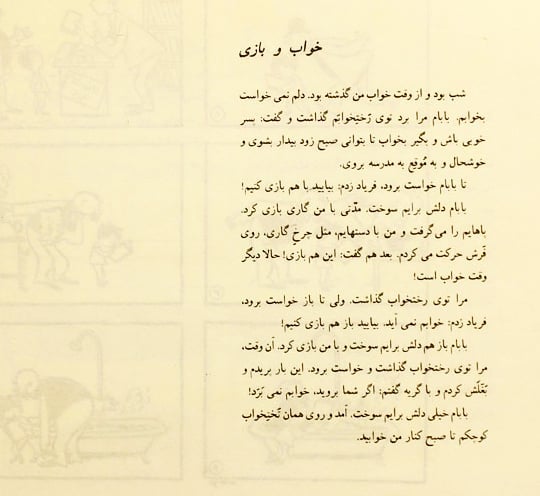 خواب و بازی
شب بود و از وقت خواب من گذشته بود. دلم نمی خواست
بخوابم. بابام مرا برد توی رَختِخوابَم گذاشت و گفت: پسر
خوبی باش و بگیر بخواب تا بتوانی صبح زود بیدار بشوی و
خوشحال و به مُوقِع به مدرسه بروی.
تا بابام خواست برود، فریاد زدم: بیایید با هم بازی کنیم!
بابام دلش برایم سوخت. مدّتی با من گاری بازی کرد.
پاهایم را می‌گرفت و من با دستهایم، مثل چرخِ گاری، روی
فَرش حرکت می کردم. بعد هم گفت: این هم بازی! حالا دیگر
وقت خواب است!
مرا توی رختخواب گذاشت. ولی تا باز خواست برود،
فریاد زدم: خوابم نمی آید. بیایید باز هم بازی کنیم!
بابام باز هم دلش برایم سوخت و با من بازی کرد. آن وقت،
مرا توی رختخواب گذاشت و خواست برود. این بار پریدم و
بَغَلَش کردم و با گریه گفتم: اگر شما بروید، خوابم نمی بَرَد!
بابام خیلی دلش برایم سوخت. آمد و روی همان تَختِخواب
کوچکم تا صبح کنار من خوابید.